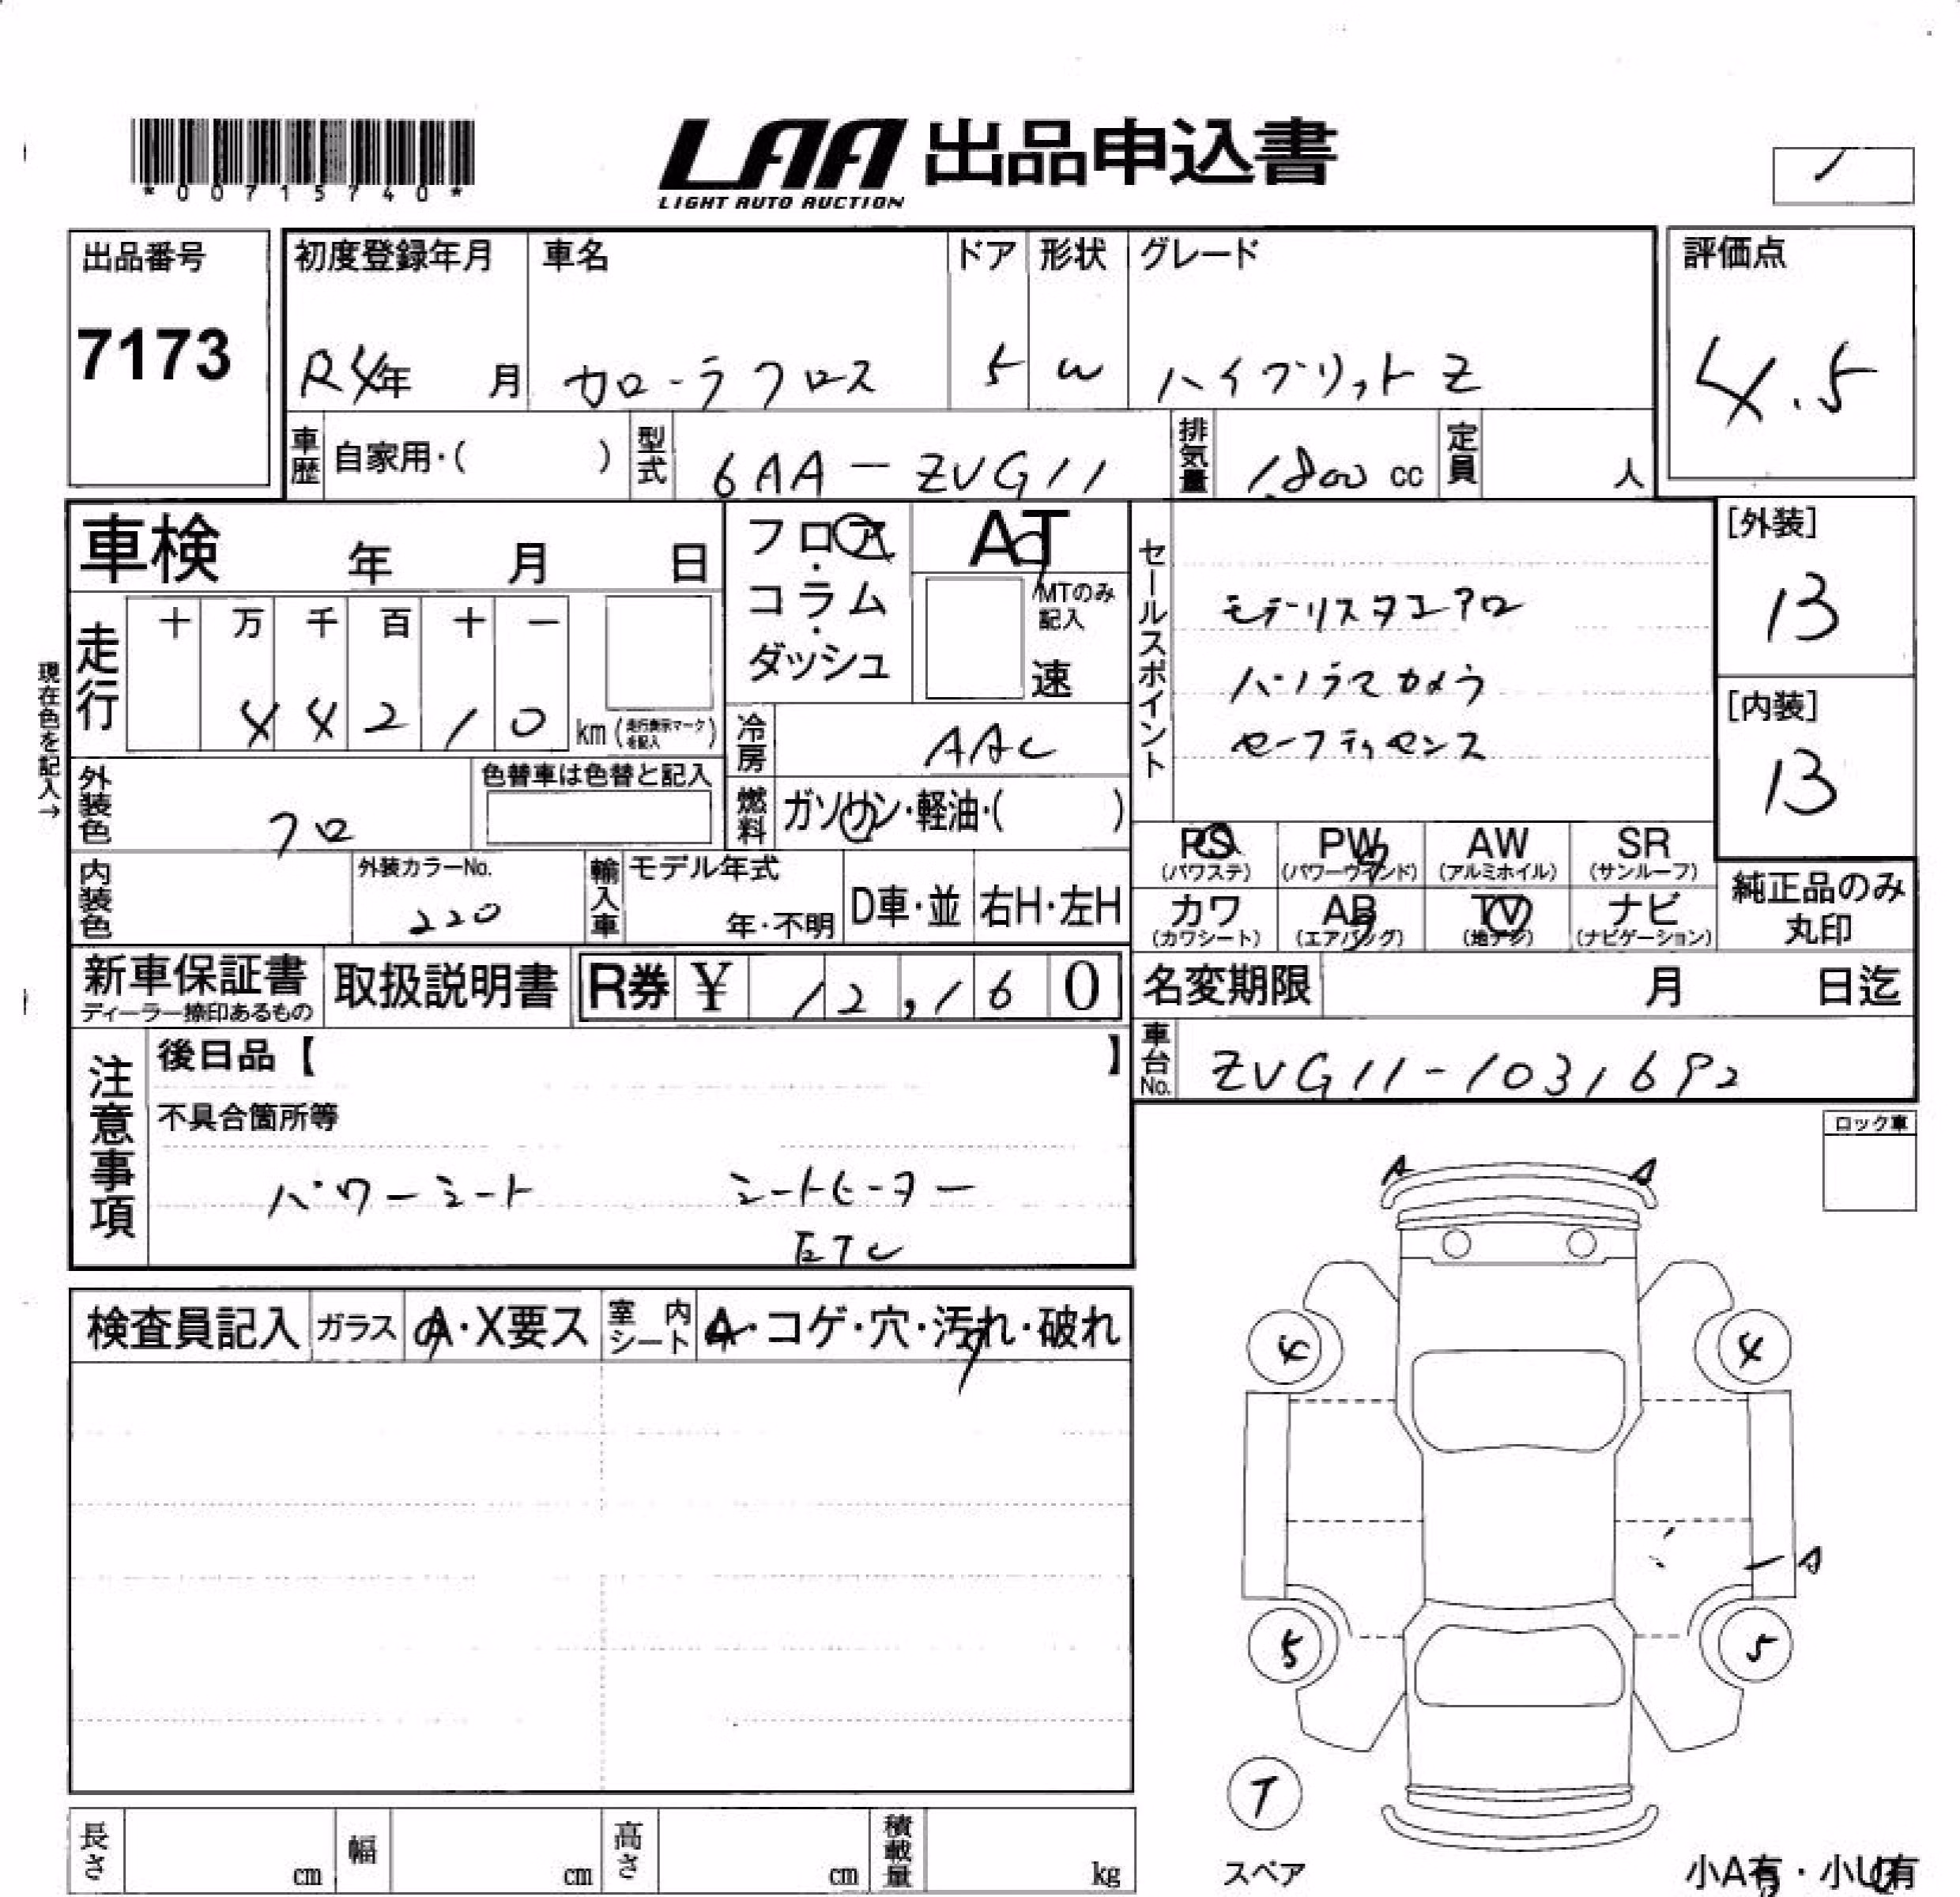 *00715740*
LAA 出品申込書
LIGHT AUTO AUCTION
出品番号
7173
初度登録年月 車名 ドア 形状 グレード
R4年 月 カローラクロス 5 W ハイブリットZ
評価点
4.5
車歴 自家用・( ) 型式 6AA-ZVG11 排気量 1,800 cc 定員 人
車検 年 月 日
フロア・コラム・ダッシュ
AT
MTのみ記入
速
セールスポイント
モデリスタエアロ
パノラマカメラ
セーフティセンス
[外装]
13
[内装]
13
現在色を記入→
走行 十 万 千 百 十 一
4 4 2 1 0 km (走行表示マークを記入)
冷房 AAC
外装色 クロ 色替車は色替と記入
燃料 ガソリン・軽油・( )
PS (パワステ) PW (パワーウインド) AW (アルミホイル) SR (サンルーフ)
カワ (カワシート) AB (エアバッグ) TV (地デジ) ナビ (ナビゲーション)
純正品のみ丸印
内装色 外装カラーNo. 220 輸入車 モデル年式 年・不明 D車・並 右H・左H
新車保証書
ディーラー捺印あるもの
取扱説明書 R券 ¥ 12,160
名変期限 月 日迄
車台No. ZVG11-1031692
注意事項
後日品【 】
不具合箇所等
パワーシート シートヒーター
ETC
ロック車
検査員記入 ガラス A・X要ス 室内シート A・コゲ・穴・汚れ・破れ
A A
4 4
A
5 5
T
スペア
長さ cm 幅 cm 高さ cm 積載量 kg
小A有・小U有